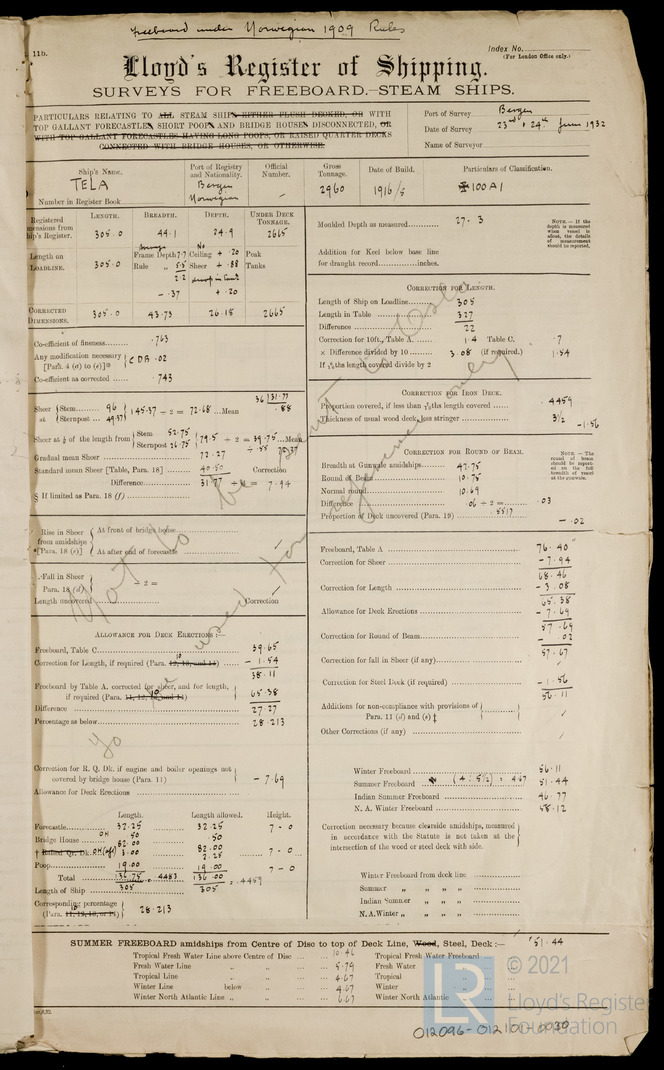 freeboard under Norwegian 1909 Rules
11b.
Index No.
(For London Office only.)
Lloyd's Register of Shipping.
SURVEYS FOR FREEBOARD.—STEAM SHIPS.
PARTICULARS RELATING TO ALL STEAM SHIPS EITHER FLUSH DECKED, OR WITH
TOP GALLANT FORECASTLES SHORT POOPS AND BRIDGE HOUSES DISCONNECTED, OR
WITH TOP GALLANT FORECASTLES HAVING LONG POOPS, OR RAISED QUARTER DECKS
CONNECTED WITH BRIDGE HOUSES, OR OTHERWISE.
Port of Survey Bergen
Date of Survey 23rd & 24th June 1932
Name of Surveyor
Ship's Name. Port of Registry and Nationality. Official Number. Gross Tonnage. Date of Build. Particulars of Classification.
TELA Bergen Norwegian 2960 1916/5 100 A1
Number in Register Book
LENGTH. BREADTH. DEPTH. UNDER DECK TONNAGE.
Registered
305.0 44.1 24.9 2665
Length on LOADLINE. 305.0 Frame Depth 7.7 Ceiling + .20 Peak
Rule „ 5.5 Sheer + .88 Tanks
2.2
- .37 + .20
CORRECTED DIMENSIONS. 305.0 43.73 26.15 2665
Co-efficient of fineness .763
Any modification necessary [Para. 4 (a) to (e)]* CDB .02
Co-efficient as corrected .743
Sheer at Stem 96 Sternpost 49.37 145.37 ÷ 2 = 72.68 Mean
36 131.77
.88
Sheer at ⅛ of the length from Stem 52.75 Sternpost 26.75 79.5 ÷ 2 = 39.75 Mean
Gradual mean Sheer 72.27
Standard mean Sheer [Table, Para. 18] 40.50 Correction
Difference 31.77 ÷ 4 = 7.94
§ If limited as Para. 18 (f)
Rise in Sheer from amidships [Para. 18 (e)] At front of bridge house
At after end of forecastle
Fall in Sheer Para. 18 (d) ÷ 2 =
Length uncovered Correction
ALLOWANCE FOR DECK ERECTIONS:—
Freeboard, Table C 39.65
Correction for Length, if required (Para. 12, 13, and 14) 10 - 1.54
38.11
Freeboard by Table A, corrected for sheer, and for length,
if required (Para. 11, 12, 13, and 14) 10 65.38
Difference 27.27
Percentage as below 28.213
Correction for R. Q. Dk. if engine and boiler openings not
covered by bridge house (Para. 11)
- 7.69
Allowance for Deck Erections
Length. Length allowed. Height.
Forecastle 32.25 32.25 7 - 0
Bridge House OH .50 .50
82.00 82.00
† Raised Qr. Dk. OH (aft) 3.00 2.25 7 - 0
Poop 19.00 19.00 7 - 0
Total 136.75 = .4483 136.00 = .4459
Length of Ship 305 305
Corresponding percentage (Para. 11, 12, 13, or 14) 10 28.213
Moulded Depth as measured 27. 3
NOTE.—If the depth is measured when vessel is afloat, the details of measurement should be reported.
Addition for Keel below base line
for draught record inches.
CORRECTION FOR LENGTH.
Length of Ship on Loadline 305
Length in Table 327
Difference 22
Correction for 10ft., Table A. 1.4 Table C. .7
× Difference divided by 10 3.08 (if required.) 1.54
If 6/10ths length covered divide by 2
CORRECTION FOR IRON DECK.
Proportion covered, if less than 7/10ths length covered .4459
Thickness of usual wood deck, less stringer 3½ - 1.56
CORRECTION FOR ROUND OF BEAM.
Breadth at Gunwale amidships 42.75
Round of Beam 10.75
Normal round 10.69
Difference .06 ÷ 2 = .03
Proportion of Deck uncovered (Para. 19) .5517 - .02
NOTE.—The round of beam should be reported on the full breadth of vessel at the gunwale.
Not to be used for
Freeboard, Table A 76.40"
Correction for Sheer - 7.94
68.46
Correction for Length - 3.08
65.38
Allowance for Deck Erections - 7.69
57.69
Correction for Round of Beam - .02
57.67
Correction for fall in Sheer (if any)
Correction for Steel Deck (if required) - 1.56
56.11
Additions for non-compliance with provisions of
Para. 11 (d) and (e) ‡
Other Corrections (if any)
Winter Freeboard 56.11
Summer Freeboard 51.44
Indian Summer Freeboard 46.77
N. A. Winter Freeboard 58.12
Correction necessary because clearside amidships, measured
in accordance with the Statute is not taken at the
intersection of the wood or steel deck with side.
Winter Freeboard from deck line
Summer „ „ „
Indian Summer „ „ „
N.A. Winter „ „ „
SUMMER FREEBOARD amidships from Centre of Disc to top of Deck Line, Wood, Steel, Deck:— 51.44
Tropical Fresh Water Line above Centre of Disc 10.46 Tropical Fresh Water Freeboard
Fresh Water Line „ „ 5.79 Fresh Water
Tropical Line „ „ 4.67 Tropical
Winter Line below „ 4.67 Winter
Winter North Atlantic Line „ „ 6.67 Winter North Atlantic
LR © 2021
Lloyd's Register
Foundation
012096-012101-0030